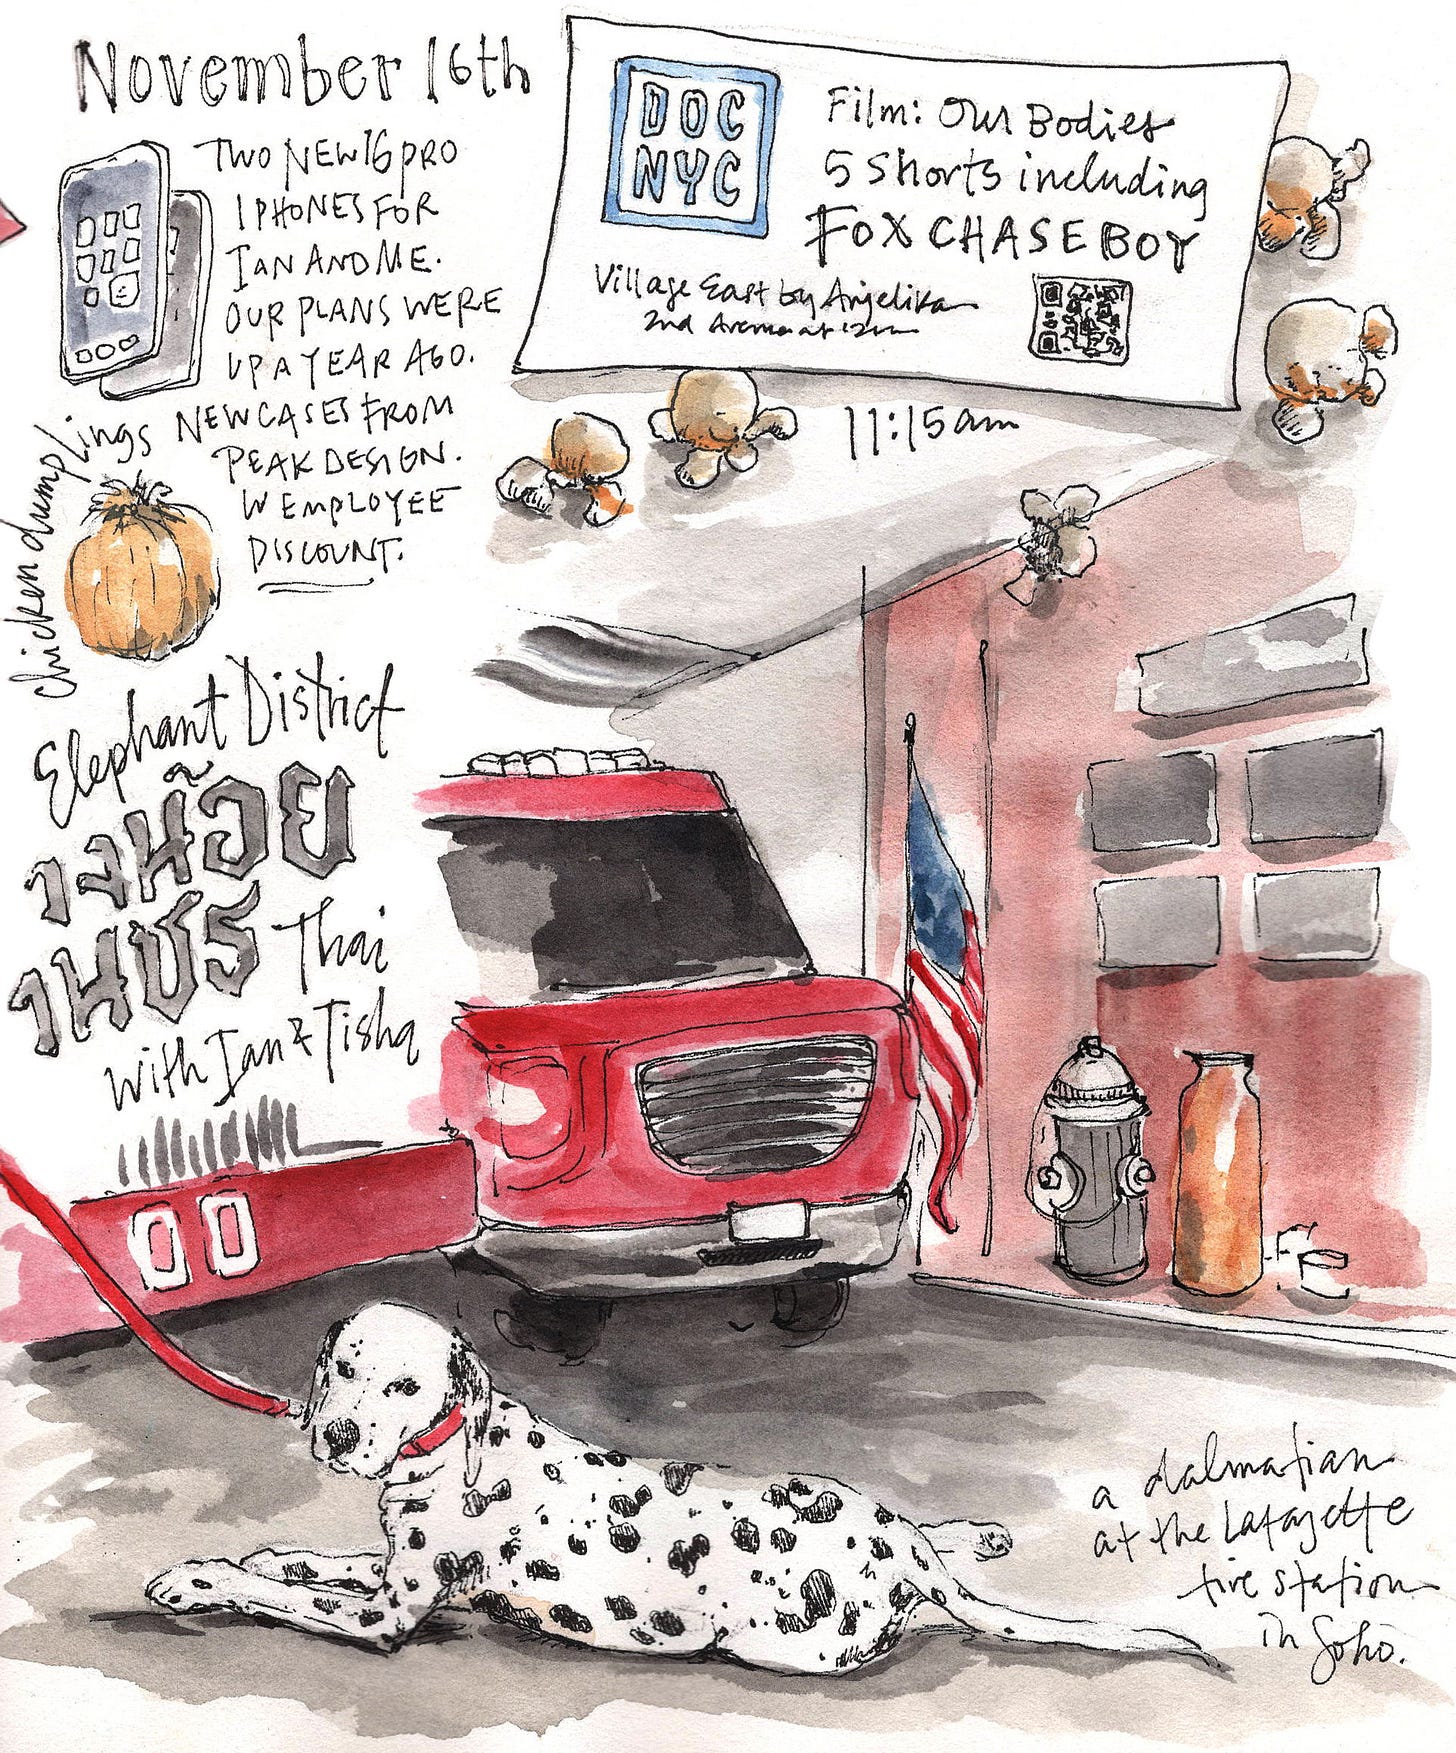 November 16th
TWO NEW 16 PRO
IPHONES FOR
IAN AND ME.
OUR PLANS WERE
UP A YEAR AGO.
NEW CASES FROM
PEAK DESIGN.
W EMPLOYEE
DISCOUNT.
DOC
NYC
Film: Our Bodies
5 Shorts including
FOX CHASE BOY
Village East by Anjelika
2nd Avenue at 12th
11:15 am
chicken dumplings
Elephant District
างน้อย
านชร Thai
with Ian & Tisha
a dalmatian
at the Lafayette
fire station
in Soho.